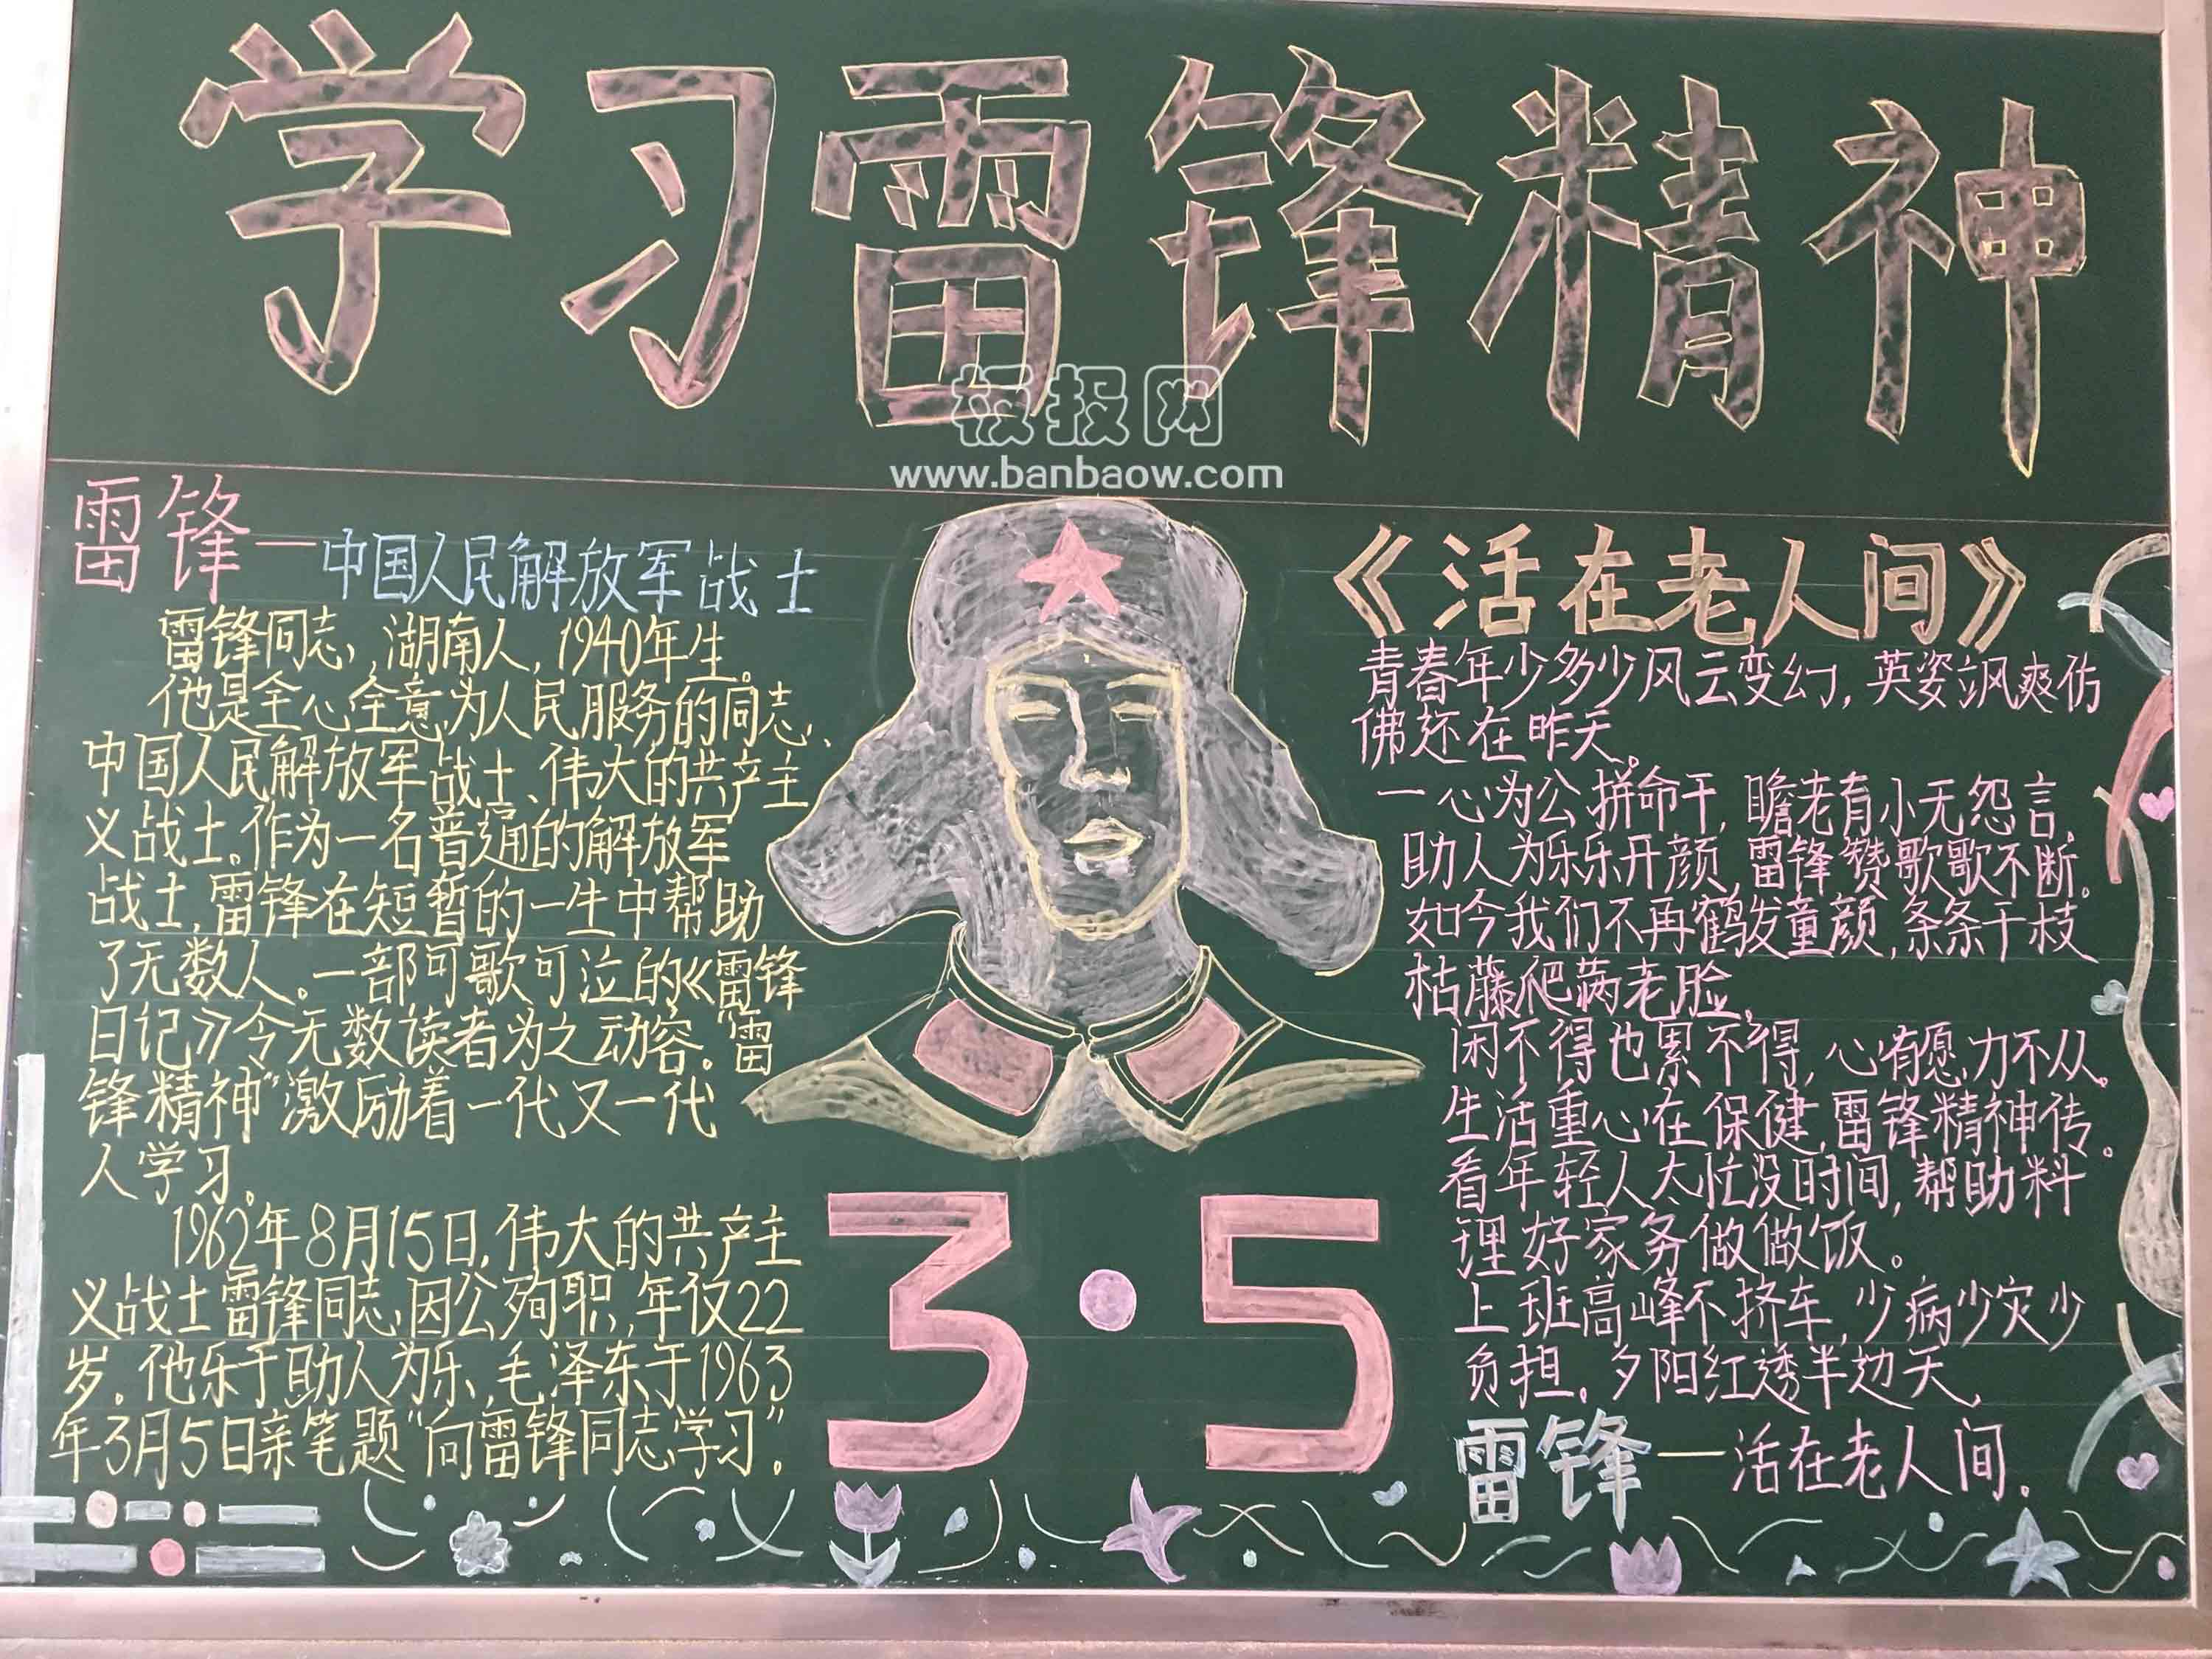 学习雷锋精神
板报网
www.banbaow.com
雷锋—中国人民解放军战士
雷锋同志,湖南人,1940年生。
他是全心全意为人民服务的同志、
中国人民解放军战士、伟大的共产主
义战士。作为一名普通的解放军
战士,雷锋在短暂的一生中帮助
了无数人。一部可歌可泣的《雷锋
日记》令无数读者为之动容。"雷
锋精神"激励着一代又一代
人学习。
1962年8月15日,伟大的共产主
义战士雷锋同志,因公殉职,年仅22
岁。他乐于助人为乐,毛泽东于1963
年3月5日亲笔题"向雷锋同志学习"。
3·5
《活在老人间》
青春年少多少风云变幻,英姿飒爽仿
佛还在昨天。
一心为公拼命干,瞻老有小无怨言。
助人为乐乐开颜,雷锋赞歌歌不断。
如今我们不再鹤发童颜,条条干枝
枯藤爬满老脸。
闲不得也累不得,心有愿力不从。
生活重心在保健,雷锋精神传。
看年轻人太忙没时间,帮助料
理好家务做做饭。
上班高峰不挤车,少病少灾少
负担。夕阳红透半边天,
雷锋—活在老人间。